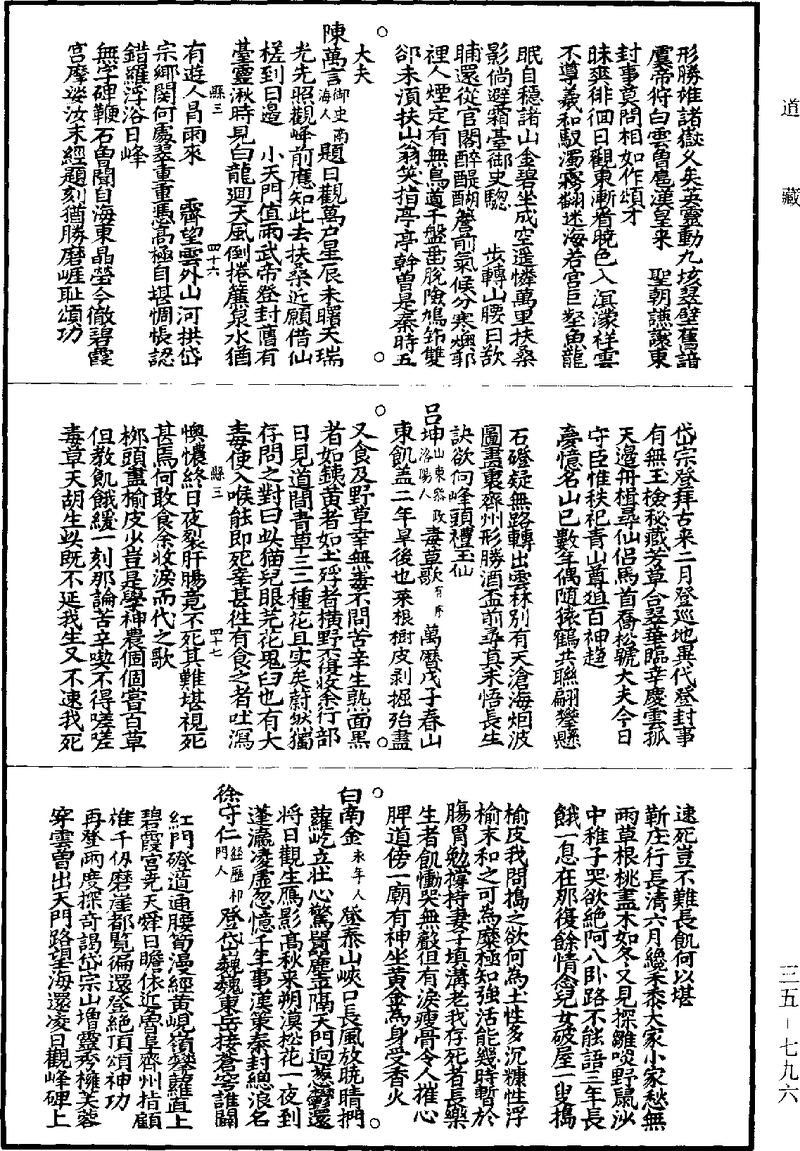 道藏
形勝雄諸嶽久矣英靈動九垓翠壁舊諳
虞帝狩白雲曾扈漢皇来 聖朝謙讓東
封事莫問相如作頌才
昧爽徘徊日觀東漸看曉色入溟濛祥雲
不導羲和馭濁霧翻迷海若宮巨壑魚龍
眠自穩諸山金碧坐成空遥憐萬里扶桑
影倘避霜臺御史驄 步轉山腰日欲
晡還從官閣醉醍醐簷前氣候分寒燠郭
裡人煙定有無鳥道千盤重脫險鳩笻雙
卻未須扶山翁笑指亭亭幹曾是秦時五
大夫
陳萬言御史南海人題日觀萬户星辰未曙天瑞
光先照觀峰前應知此去扶桑近願借仙
槎到日邊 小天門值雨武帝登封舊有
臺靈湫時見白龍廻天風倒捲簾泉水猶
縣三 四十六
有遊人冒雨來 霽望雲外山河拱岱
宗鄉関何處翠重重憑高極目堪惆悵認
錯羅浮浴日峰
無字碑鞭石曾聞自海東晶瑩今徹碧霞
宮摩娑汝未經題刻猶勝磨崖耻頌功
岱宗登拜古来二月登巡地異代登封事
有無玉檢秘藏芳草合翠華臨幸慶雲孤
天邊舟楫尋仙侣馬首喬松號大夫今日
守臣惟秩祀青山尊爼百神趋
憂憶名山已數年偶随猿鶴共聯翩攀懸
石磴疑無路轉出雲林別有天滄海烟波
圖畫裏齊州形勝酒盃前尋真未悟長生
訣欲向峰頭禮玉仙
吕坤山東叅政洛陽人毒草歌有序 萬曆戊子春山
東飢盖二年早後也菜根樹皮剥掘殆盡
又食及野草幸無毒不問苦辛生熟面黒
者如銕黄者如土殍者横野不復收余行部
日見道間青草三二種花且实矣蔚然獨
存問之對曰此猫兒眼芫花鬼臼也有大
毒使入喉能即死辜甚徃有食之者吐瀉
縣三 四十七
懊憹終日夜裂肝腸竟不死其難堪視死
甚焉何敢食余收淚而代之歌
柳頭盡榆皮少豈是學神農個個嘗百草
但教飢餓緩一刻那論苦辛喫不得嗟嗟
毒草天胡生此既不延我生又不速我死
速死豈不難長飢何以堪
靳庄行長清六月纔禾黍大家小家愁無
雨草根桃盡木如冬又見探雛啖野鼠沙
中稚子哭欲絶阿八卧路不能語三年長
餓一息在那復餘情念兒女破屋一叟搗
榆皮我問搗之欲何為土性多沉糠性浮
榆末和之可為糜極知強活能幾時暫於
膓胃勉撑持妻子填溝老我存死者長樂
生者飢慟哭無聲但有淚瘦骨令人摧心
脾道傍一廟有神坐黄金為身受香火
白南金永年人登泰山峽口長風放晄晴捫
蘿屹立壮心驚鬐塵平隔天門逈葱鬱還
将日觀生鴈影髙秋来朔漠松花一夜到
蓬瀛凌虛忽憶千年事漢策秦封總浪名
徐守仁經歷祁門人登岱巍巍東岳接蒼穹誰闢
紅門磴道通腰笱漫經黄峴嶺攀蘿直上
碧霞宮尭天舜日瞻依近魯阜齊州指顧
雄千仭磨崖都覧徧還登絶頂頌神功
再登兩度探奇謁岱宗山增靈秀擁芙蓉
穿雲曽出天門路望海還凌日觀峰碑上
三五-七九六